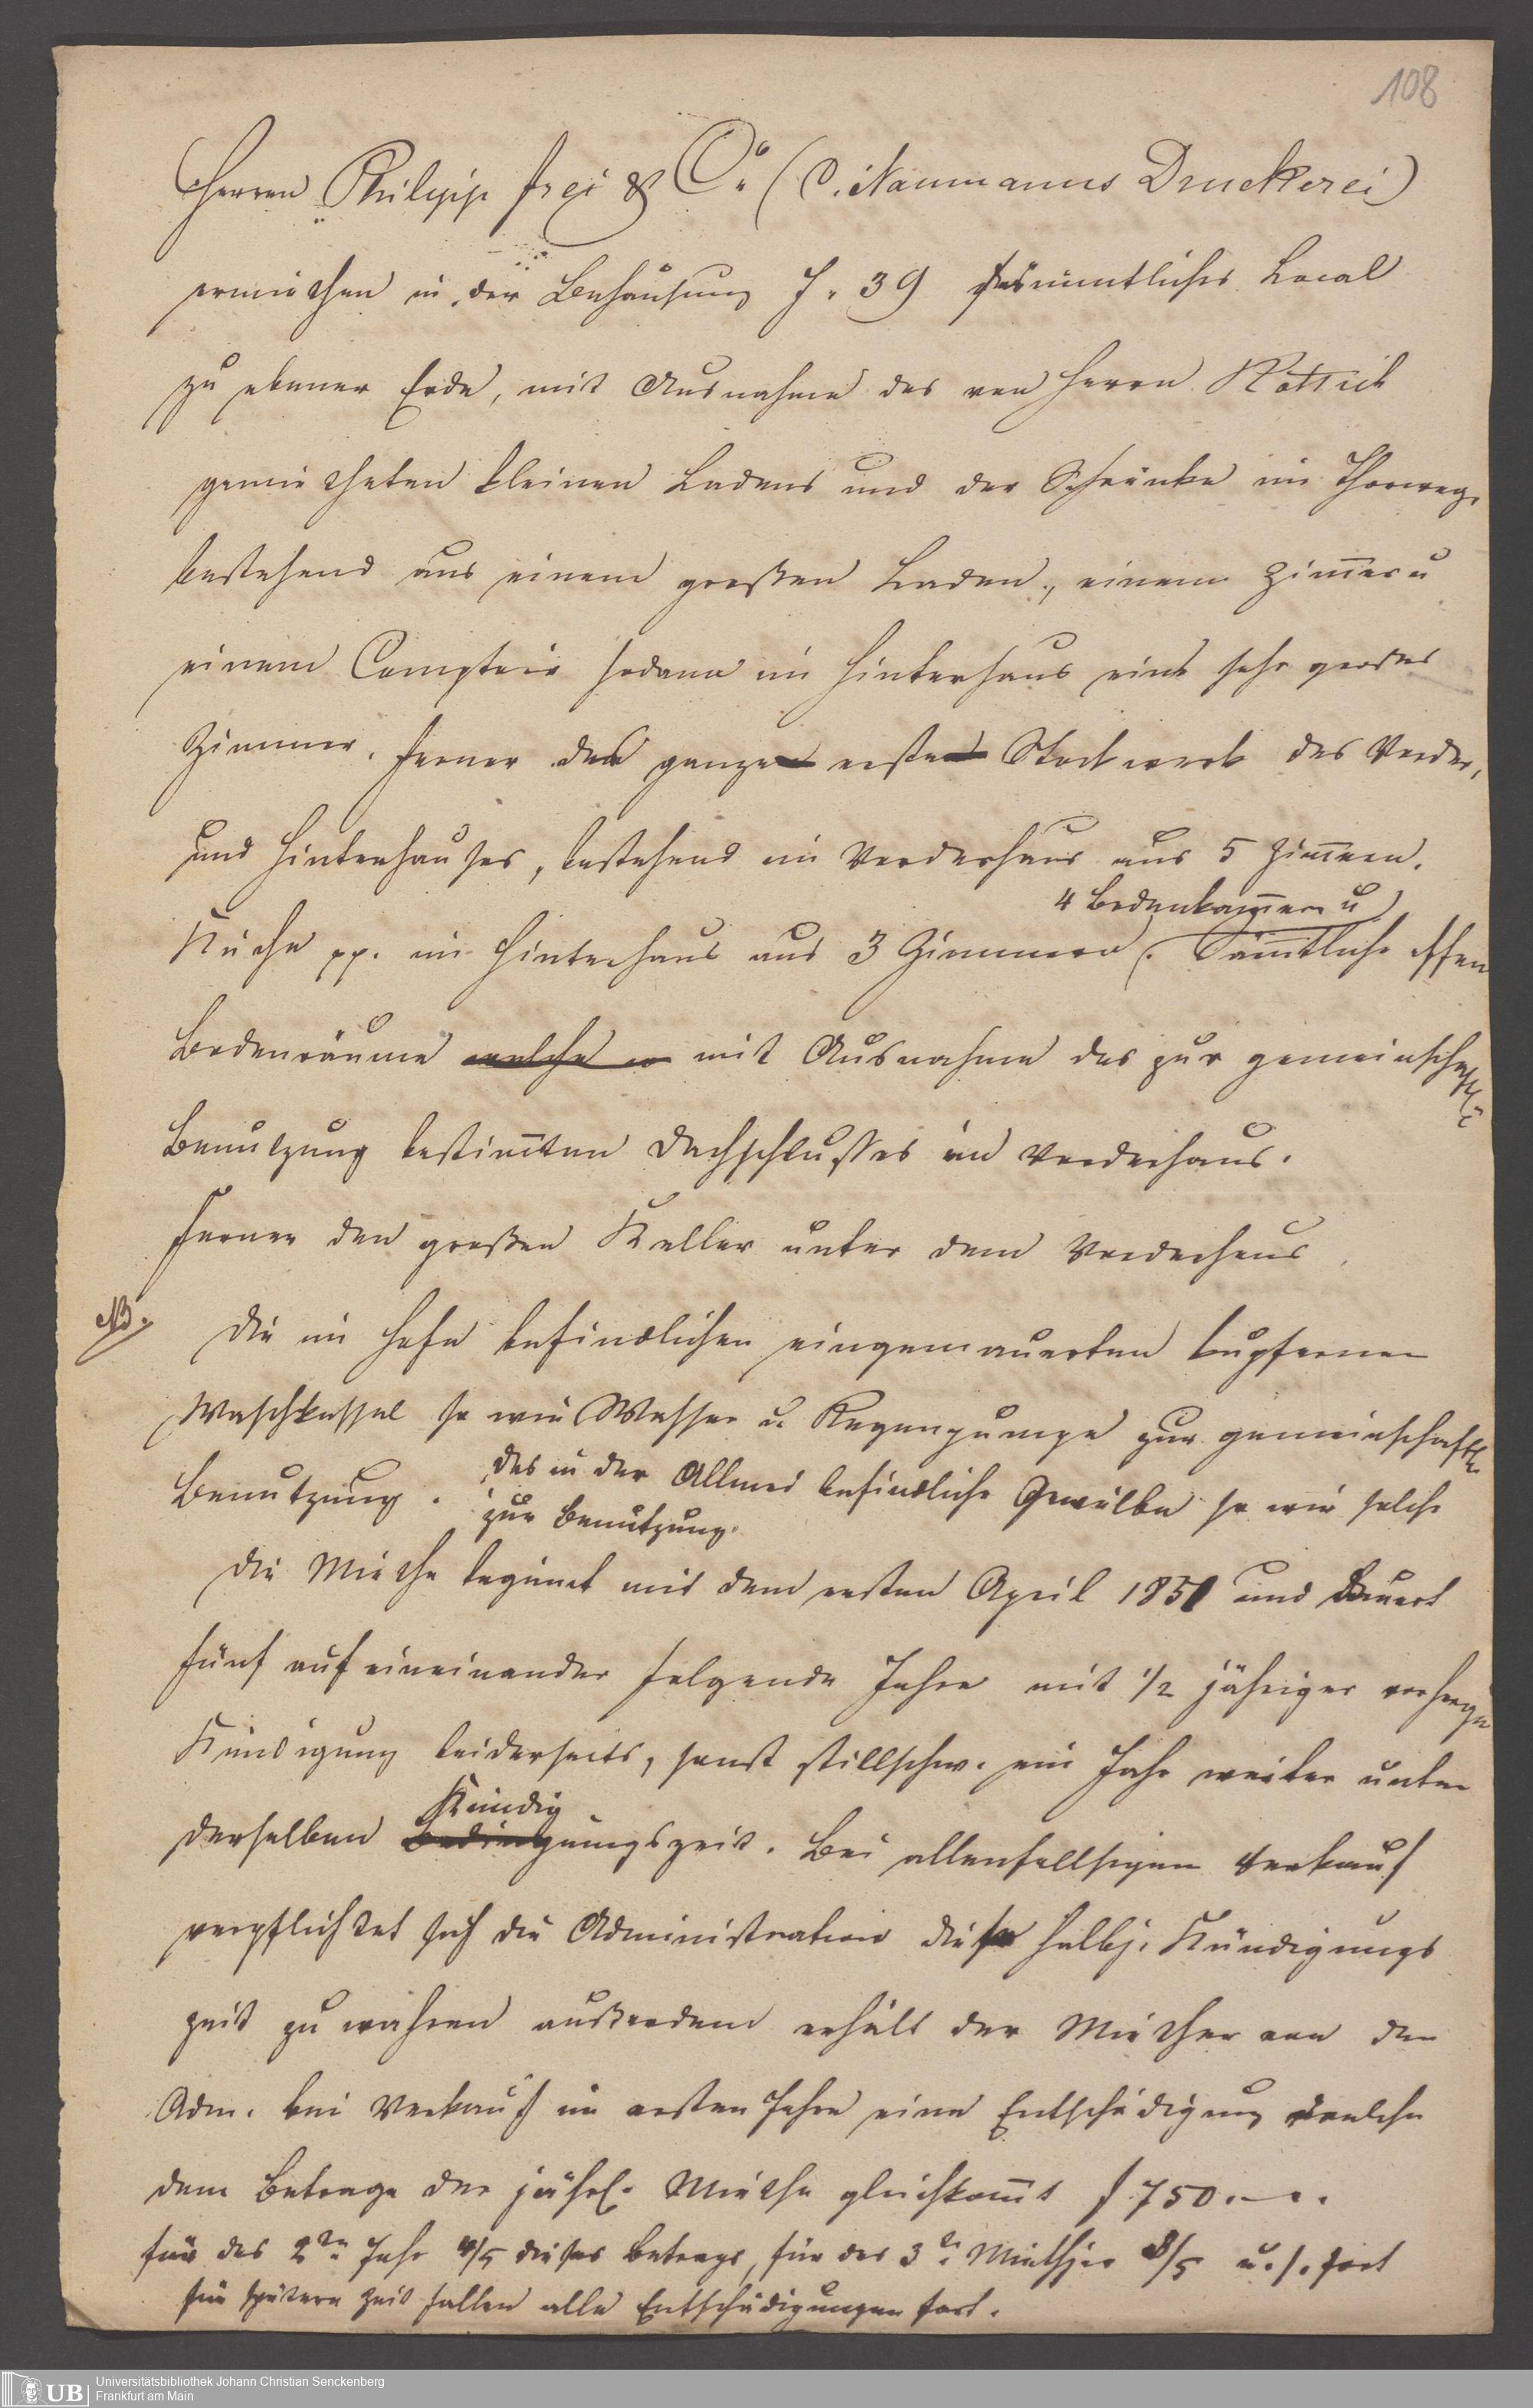 108
Herren Philipp Frei & Co. (C. Naumanns Druckerei)
ermiethen in der Behausung J. 39 sämmtliches Local
zu ebener Erde, mit Ausnahme des von Herrn Rottick
gemietheten kleinen Ladens und der Schränke im Thorweg,
bestehend aus einem großen Laden, einem Zim̅er u
einem Comptoir sodann im Hinterhaus eins sehr großes
Zimmer. ferner das ganze erste Stockwerk des Vorder,
und Hinterhauses, bestehend im Vorderhaus aus 5 Zim̅ern,
4 Bodenkam̅ern u
Küche pp. im Hinterhaus aus 3 Zimmern. Säm̅tliche offen
Bodenräume welche mit Ausnahme des zur gemeinschaftl.
Benutzung bestim̅ten Dachschlusses im Vorderhaus.
Ferner den großen Keller unter dem Vorderhaus.
NB. Die im Hofe befindlichen eingemauerten kupfernen
Waschkessel so wie Wasser u. Regenpumpe zur gemeinschaftl.
Benutzung. das in der Allmei befindliche Gewölbe so wie solche
zur Benutzung.
Die Miethe beginnt mit dem ersten April 1851 und dauert
fünf auf eineinander folgende Jahre mit 1/2 jähriger vorherge
Kündigung beiderseits, sonst stillschw. ein Jahr weiter unter
Kündig
derselben Bedingungszeit. Bei allenfallsigem Verkauf
verpflichtet sich die Administration diese halbj. Kündigungs
zeit zu wahren außerdem erhält der Miether von der
Adm. bei Verkauf im ersten Jahre eine Entschädigung welche
dem Betrage der jährl. Miethe gleichkom̅t f 750.—.
für das 2te Jahr 4/5 dieses Betrags, für das 3te Miethjar 3/5 u. s. fort
für spätere Zeit fallen alle Entschädigungen fort.
UB Universitätsbibliothek Johann Christian Senckenberg
Frankfurt am Main